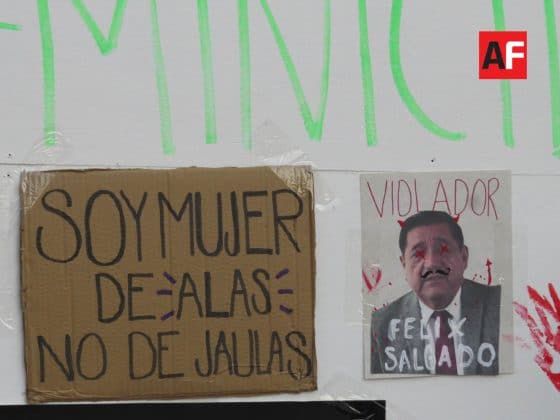 MINICI
AF
SOY MUJER
DE ALAS
NO DE JAULAS
VIOLADOR
FELIX
SALGADO